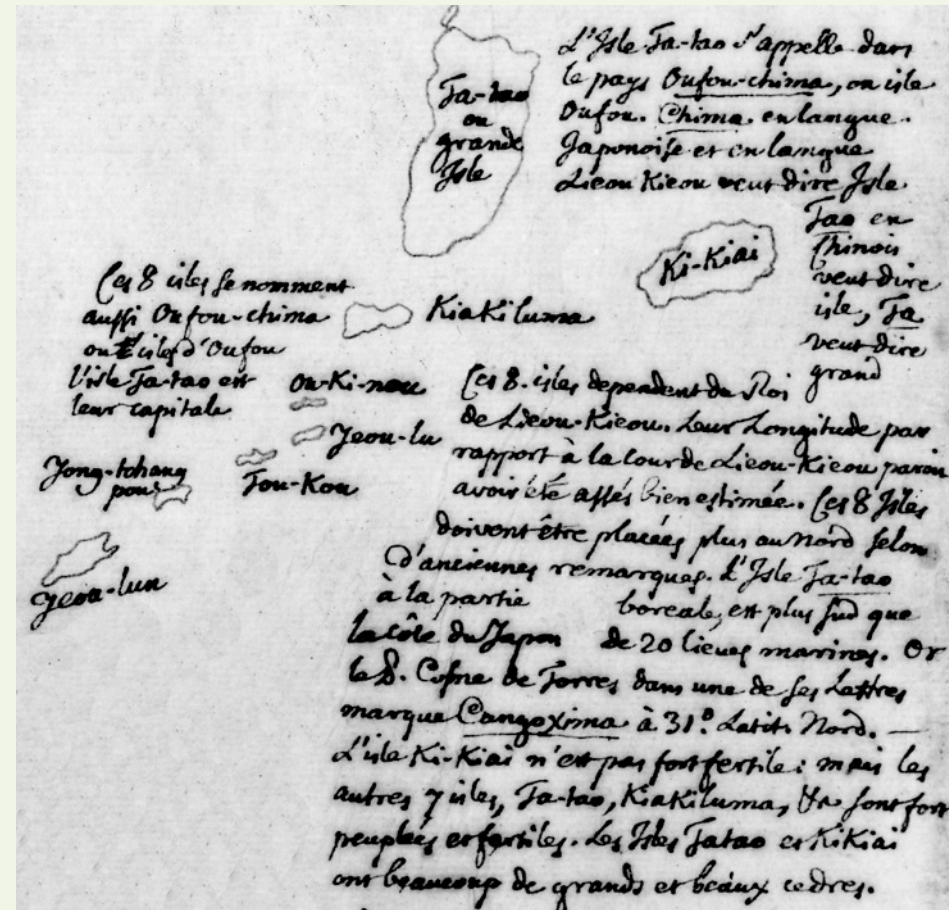 Ta-tao
ou
grande
Isle
L'Isle Ta-tao s'appelle dans
le pays Oufou-chima, ou isle
Oufou. Chima en langue
Japonoise et en langue
Lieou Kieou veut dire Isle
Tao en
Chinois
veut dire
isle, Ta
veut dire
grand
Ki-Kiai
Ces 8 isles se nomment
aussi Oufou-chima
ou isles d'Oufou
l'isle Ta-tao est
leur capitale
KiaKiluma
Ou-Ki-nou
Jeou-lu
Tou-Kou
Yong-tchang
pou
Jeou-lun
Ces 8. isles dependent du Roi
de Lieou-Kieou. Leur Longitude par
rapport à la cour de Lieou-Kieou paroit
avoir été assés bien estimée. Ces 8 Isles
doivent être placées plus au nord selon
d'anciennes remarques. L'Isle Ta-tao
à la partie boreale, est plus sud que
la côte du Japon de 20 lieues marines. Or
le P. Cosme de Torres dans une de ses Lettres
marque Cangoxima à 31° Latit. Nord. —
L'isle Ki-Kiai n'est pas fort fertile: mais les
autres 7 isles, Ta-tao, KiaKiluma, &c sont fort
peuplées et fertiles. Les Isles Tatao et KiKiai
ont beaucoup de grands et beaux cedres.